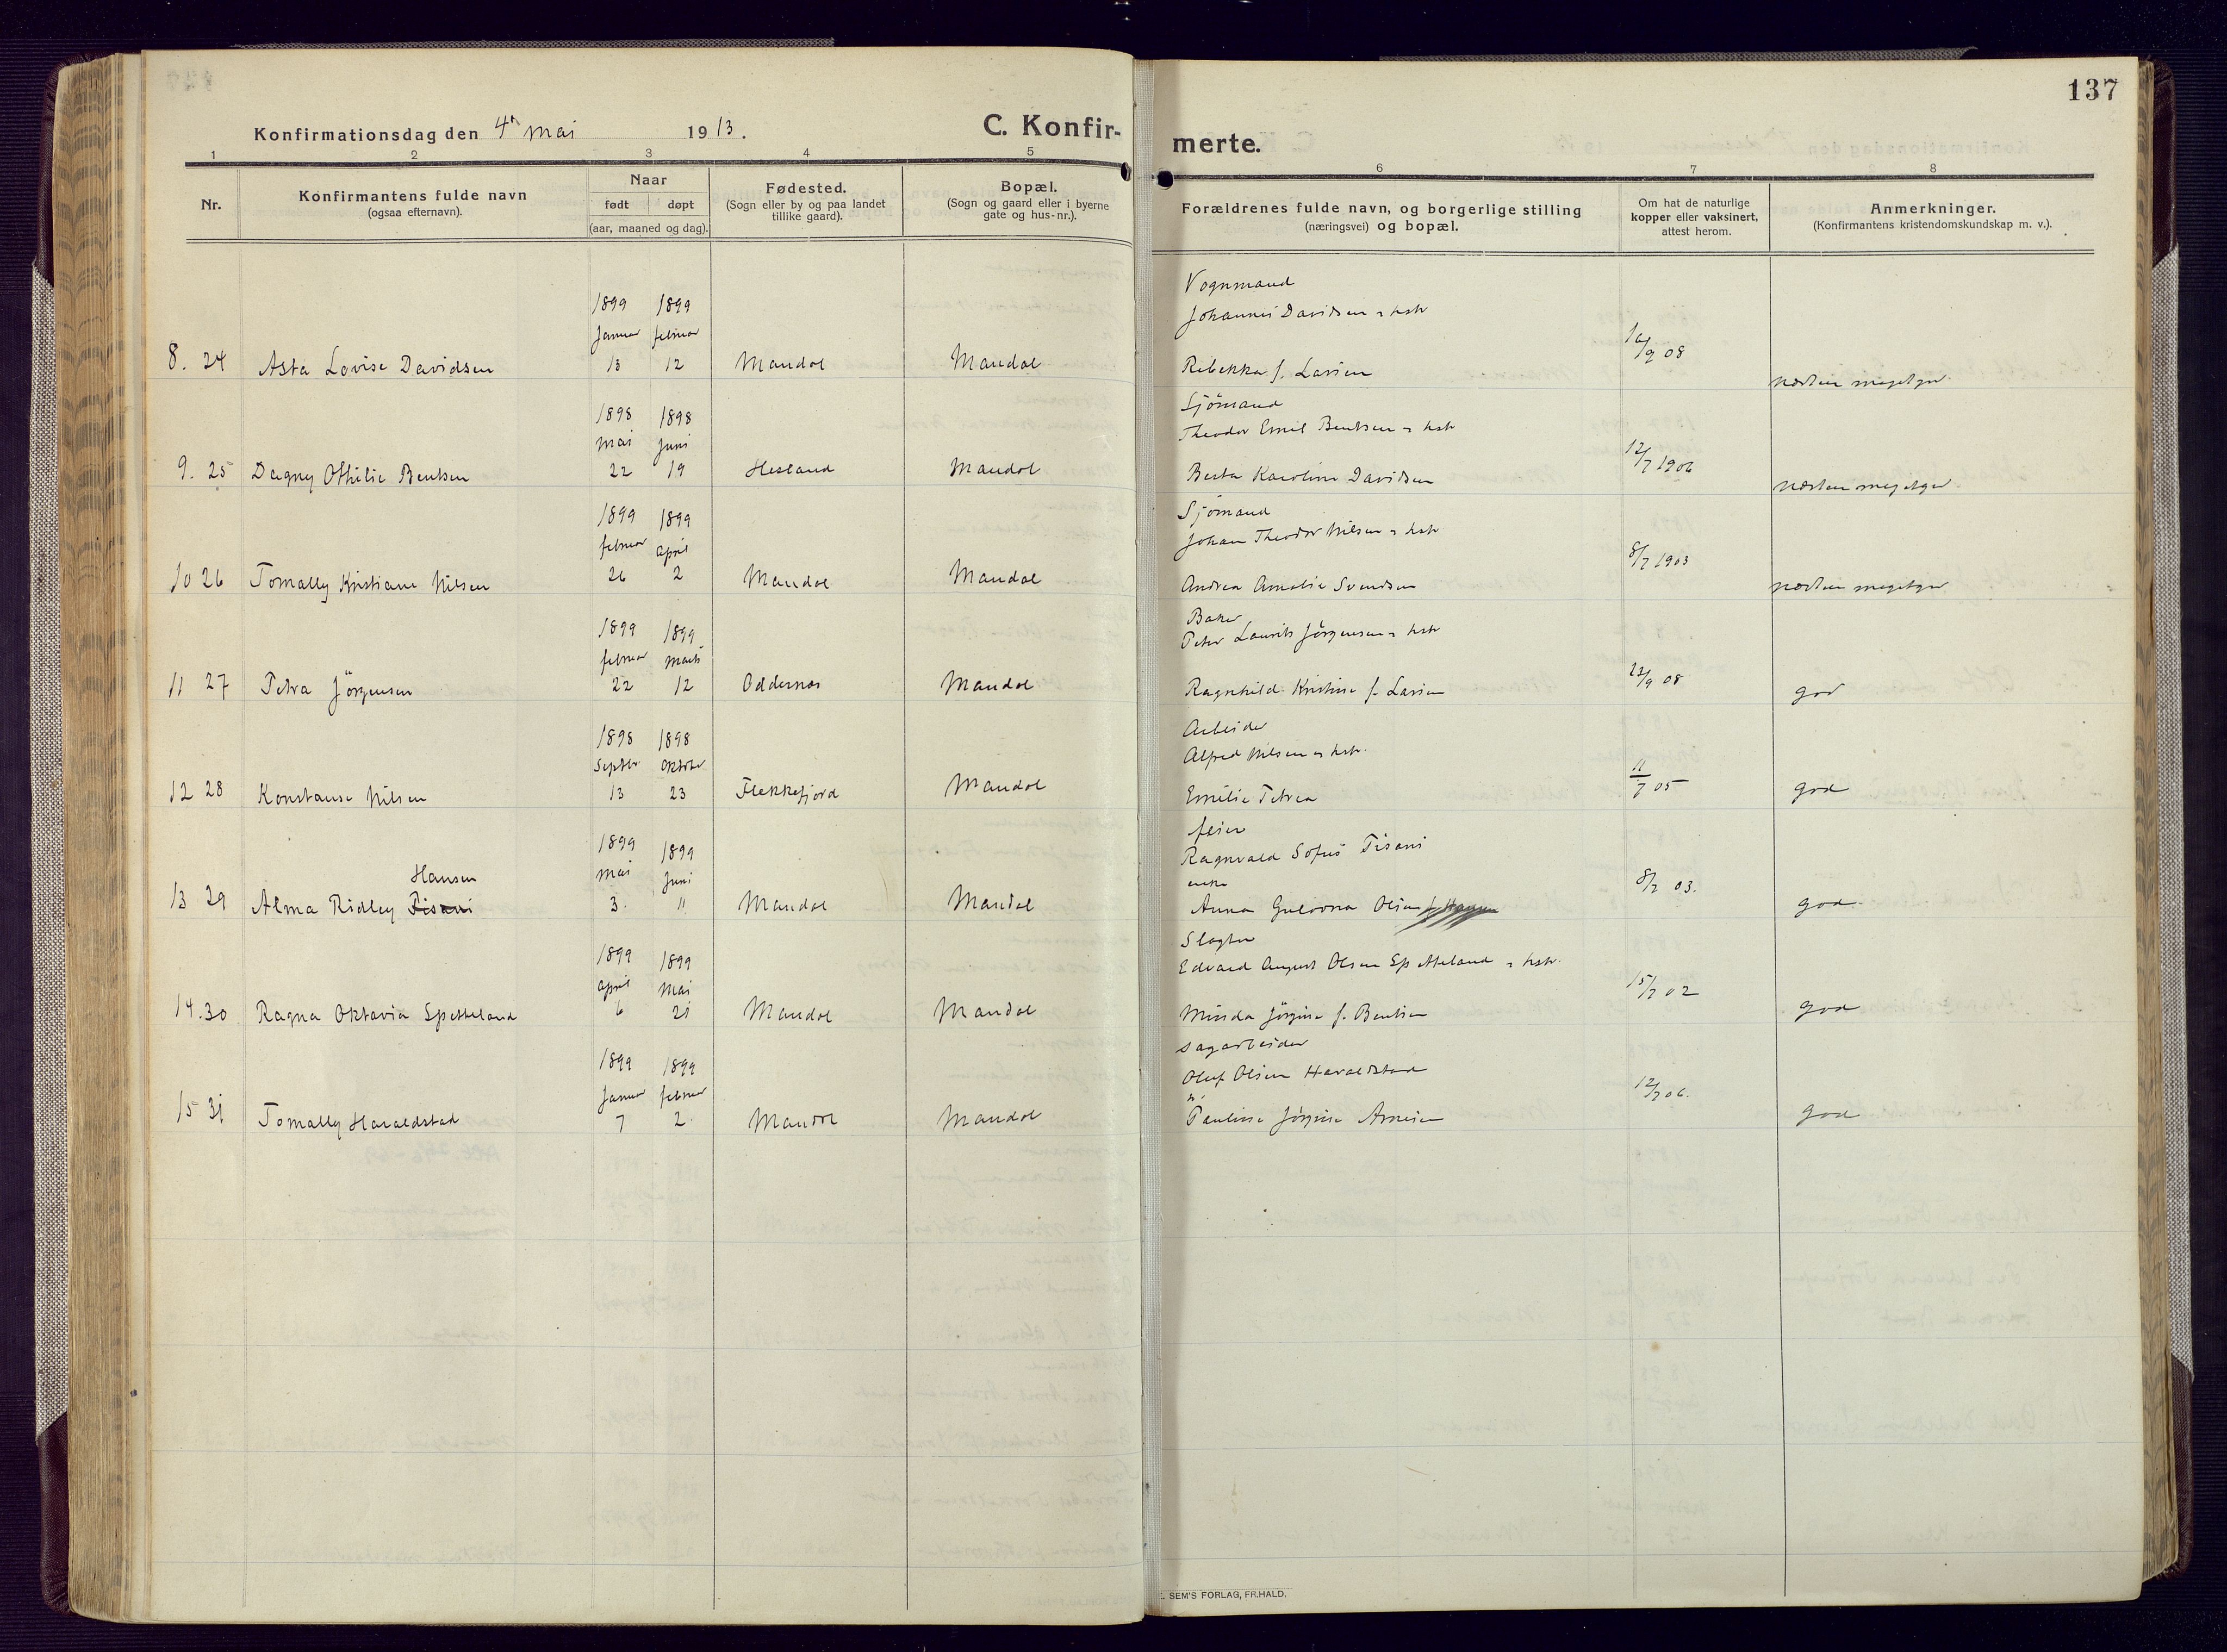 137
Konfirmationsdag den 4' mai 1913.
C. Konfirmerte.
1 2 3 4 5 6 7 8
Nr.
Konfirmantens fulde navn
(ogsaa efternavn).
Naar
født døpt
(aar, maaned og dag).
Fødested.
(Sogn eller by og paa landet
tillike gaard).
Bopæl.
(Sogn og gaard eller i byerne
gate og hus-nr.).
Forældrenes fulde navn, og borgerlige stilling
(næringsvei) og bopæl.
Om hat de naturlige
kopper eller vaksinert,
attest herom.
Anmerkninger.
(Konfirmantens kristendomskundskap m. v.).
Vognmand
1899 1899 Johannes Davidsen & hstr
Januar februar
8. 24 Asta Lovise Davidsen 13 12 Mandal Mandal Rebekka f. Larsen 16/9 08 næsten megetgod
Sjömand
1898 1898 Theodor Emil Bentsen & hstr
mai juni
9. 25 Dagny Othilie Bentsen 22 19 Hesland Mandal Berta Karoline Davidsen 12/7 1906 næsten megetgod
Sjömand
1899 1899 Johan Theodor Nilsen & hstr
februar april
10 26 Tomally Kristiane Nilsen 26 2 Mandal Mandal Andrea Amalie Svendsen 8/7 1903 næsten megetgod
Baker
1899 1899 Peter Laurits Jörgensen & hstr
februar marts
11 27 Petra Jörgensen 22 12 Oddernes Mandal Ragnhild Kristine f. Larsen 23/9 08 god
Arbeider
1898 1898 Alfred Nilsen & hstr.
Septbr Oktober
12 28 Konstanse Nilsen 13 23 Flekkefjord Mandal Emilie Petrea 11/7 05 god
feier
1899 1899 Ragnvald Sofus Pisani
mai juni
enke
Hansen
13 29 Alma Ridley Pisani 3. 11 Mandal Mandal Anna Gulovna Olsen f. Hansen 8/7 03. god
Slagter
1899 1899 Edvard August Olsen Spetteland & hstr.
april mai
14. 30 Ragna Oktavia Spetteland 6 21 Mandal Mandal Minda Jörgine f. Bentsen 15/7 02 god
sagarbeider
1899 1899 Oluf Olsen Haraldstad
Januar februar
15 31 Tomally Haraldstad 7 2. Mandal Mandal Pauline Jörgine Arnesen 12/7 06. god
SEM'S FORLAG, FR.HALD.